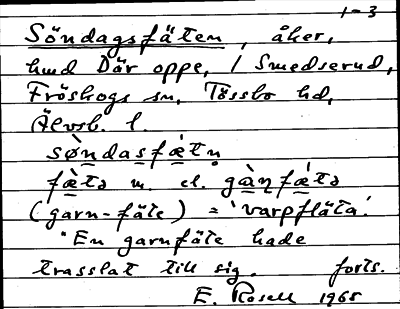 1-3
Söndagsfäten, åker,
hmd Där oppe, / Smedserud,
Fröskogs sn, Tössbo hd,
Älvsb. l.
sø̀ndasfǽtn̥
fæ̀tə m. el. gàɳfǽtə
(garn-fäte) = 'varpfläta'.
"En garnfäte hade
trasslat till sig. forts.
E. Rosell 1965